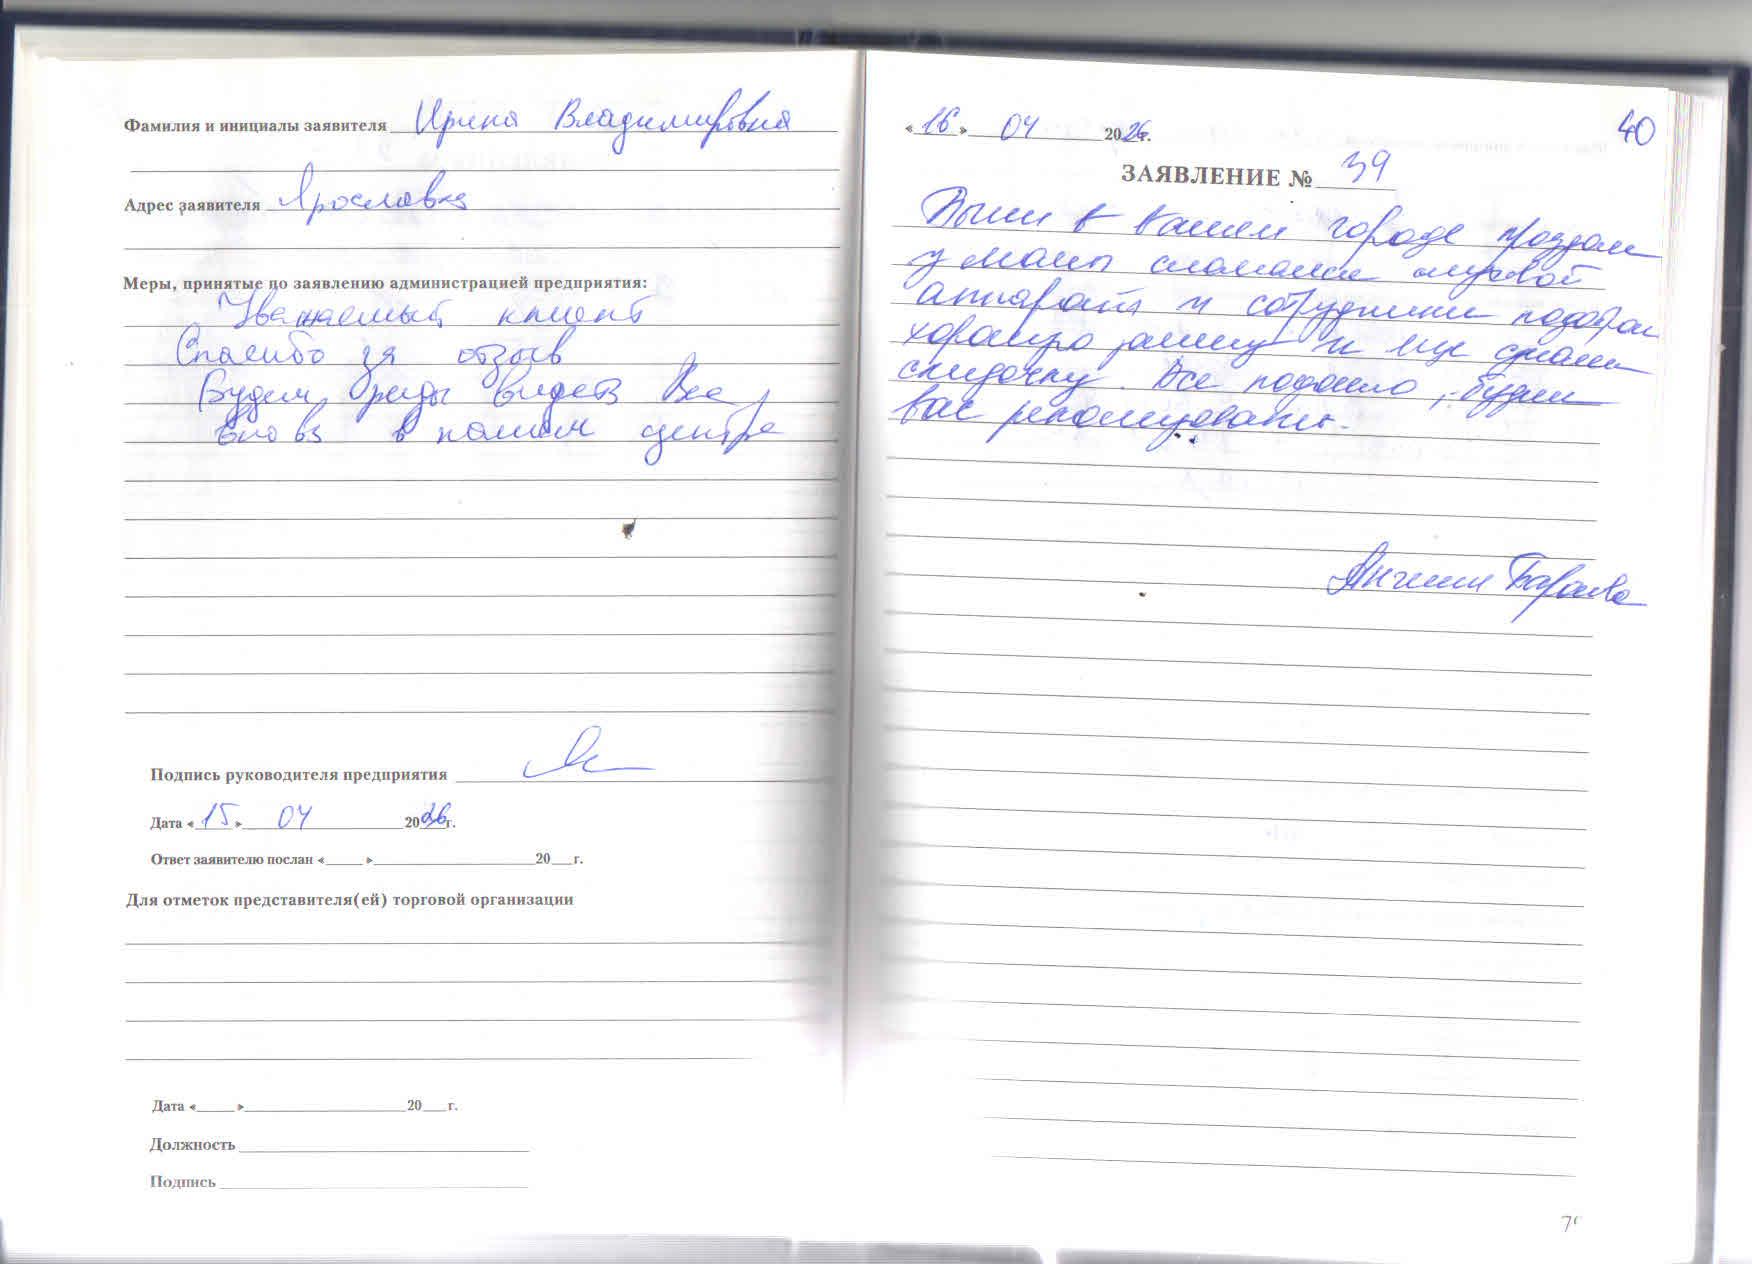 Фамилия и инициалы заявителя Ирина Владимировна
Адрес заявителя Ярославка
Меры, принятые по заявлению администрацией предприятия:
Уважаемый клиент
Спасибо за отзыв
Будем рады видеть Вас
вновь в нашем центре
Подпись руководителя предприятия
Дата «15» 04 2026г.
Ответ заявителю послан «___»___20__г.
Для отметок представителя(ей) торговой организации
Дата «___»___20__г.
Должность
Подпись
«16» 04 2026г.
40
ЗАЯВЛЕНИЕ № 39
Были в вашем городе проездом
у мамы сломался слуховой
аппарат и сотрудники подобрали
хорошую замену и еще сделали
скидочку. Все подошло, будем
вас рекомендовать.